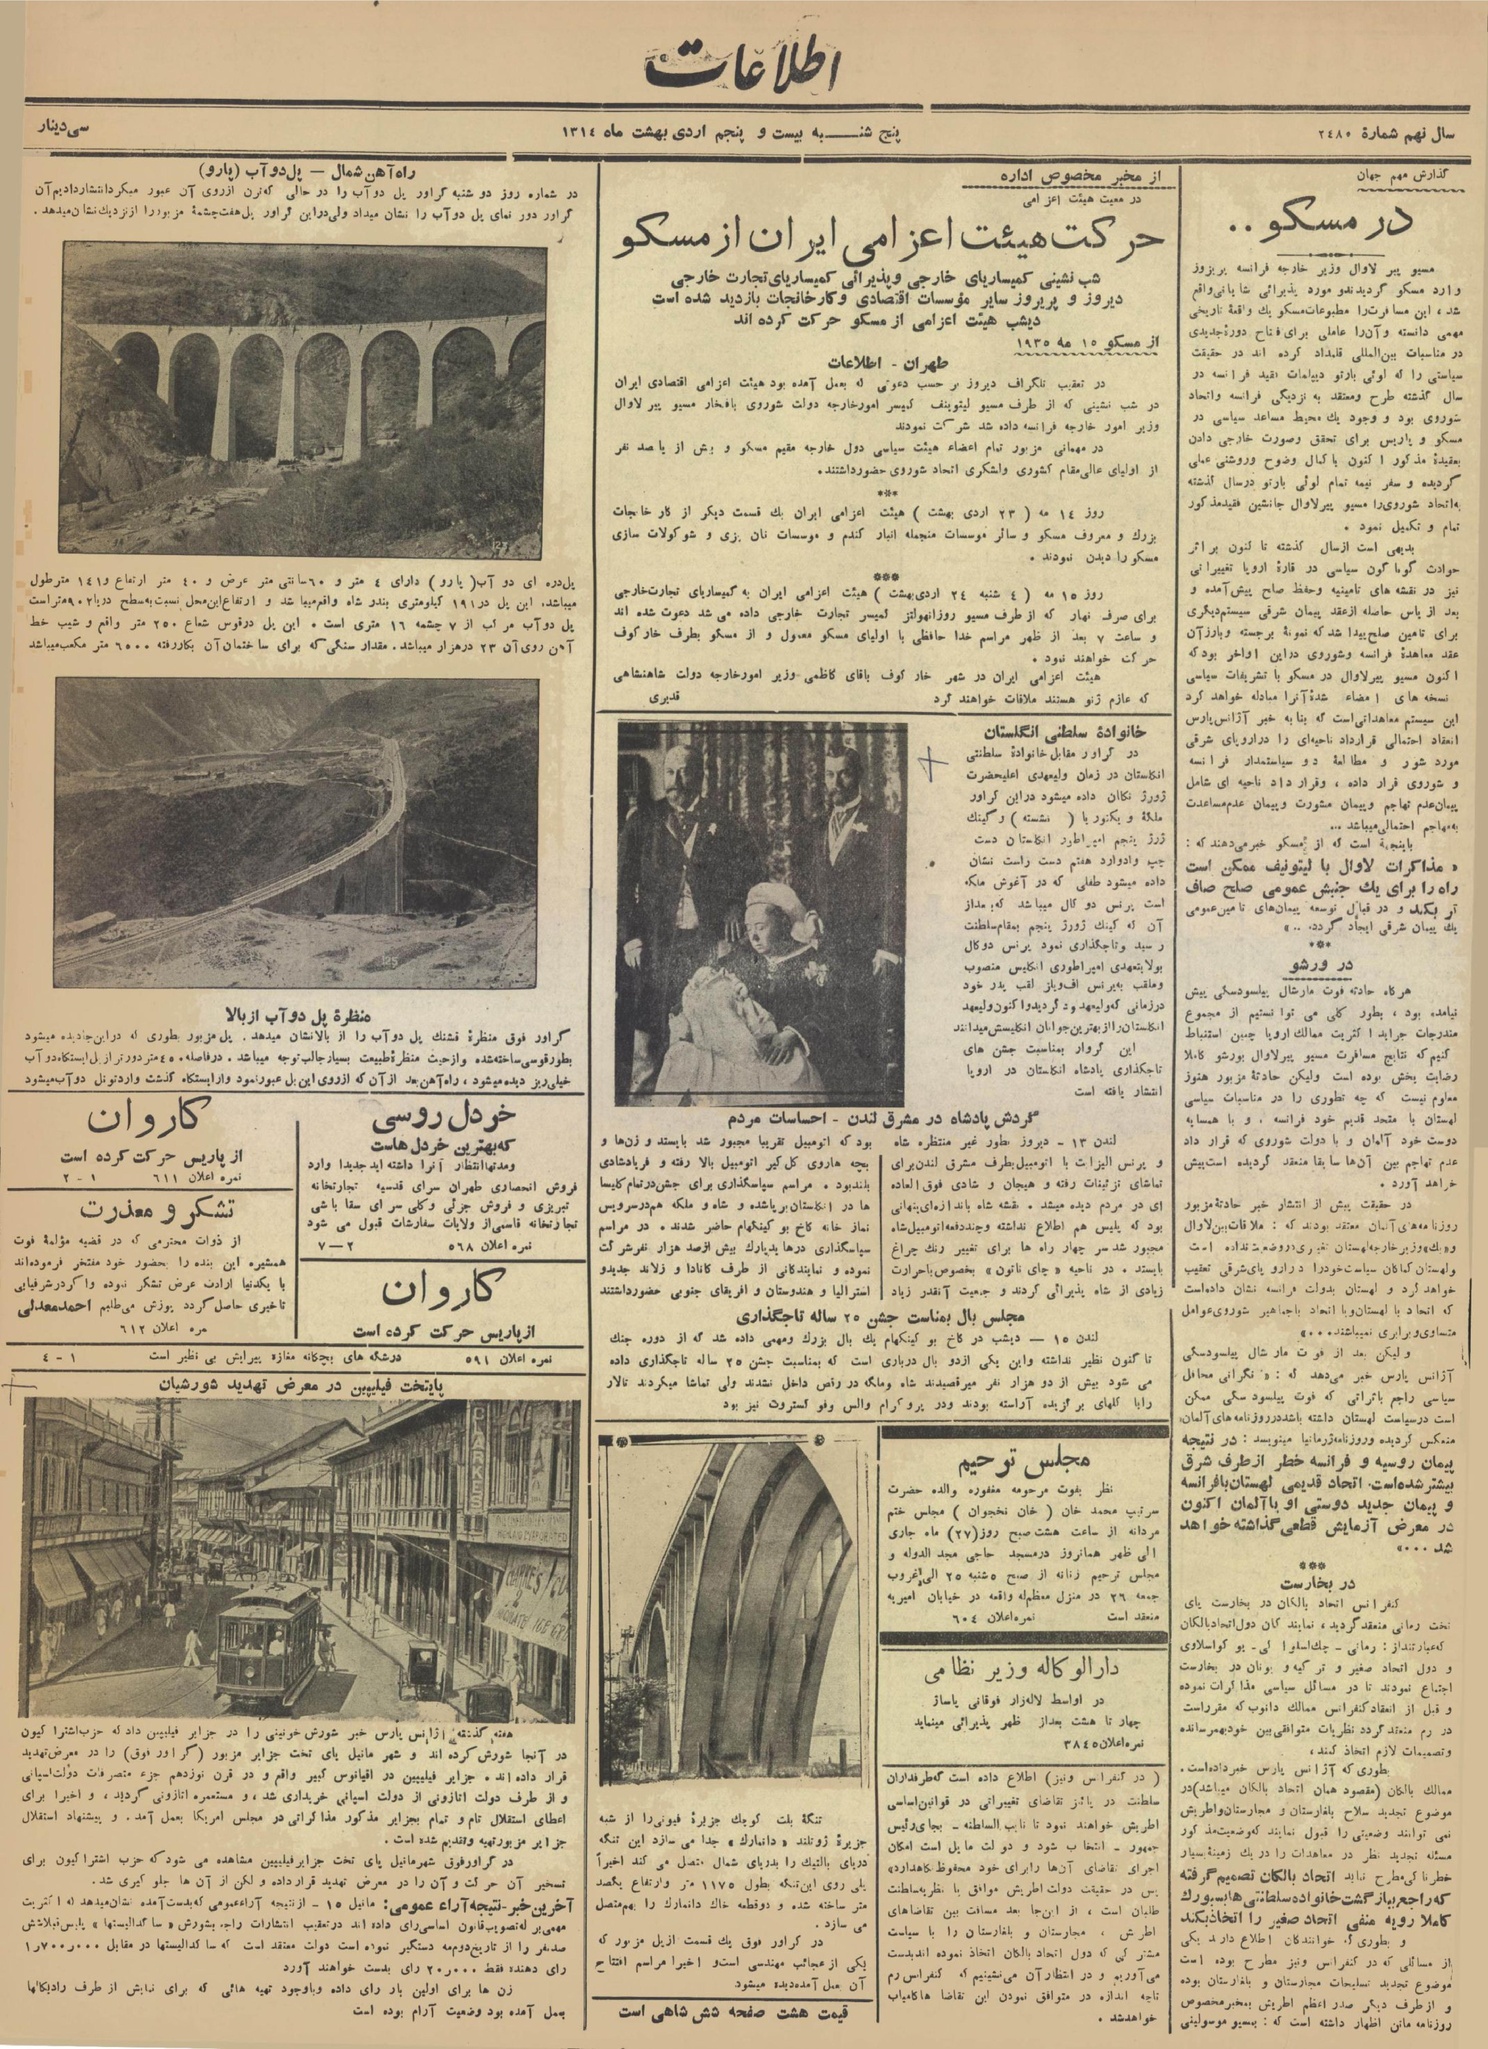 اطلاعات
سال نهم شمارهٔ ۲٤۸۰
پنج شنبه بیست و پنجم اردی بهشت ماه ۱۳۱٤
سی دینار
گذارش مهم جهان
در مسکو ..
مسیو پیر لاوال وزیر خارجه فرانسه پریروز
وارد مسکو گردیدندو مورد پذیرائی شایانی واقع
شد ، این مسافرت را مطبوعات مسکو یك واقعهٔ تاریخی
مهمی دانسته و آن را عاملی برای فتاح دورهٔ جدیدی
در مناسبات بین المللی قلمداد کرده اند در حقیقت
سیاستی را که لوئی بارتو دیپلمات فقید فرانسه در
سال گذشته طرح و معتقد به نزدیکی فرانسه واتحاد
شوروی بود و وجود یك محیط مساعد سیاسی در
مسکو و پاریس برای تحقق وصورت خارجی دادن
بعقیدهٔ مذکور اکنون با کمال وضوح وروشنی عملی
گردیده و سفر نیمه تمام لوئی بارتو درسال گذشته
به اتحاد شوروی را مسیو پیر لاوال جانشین فقید مذکور
تمام و تکمیل نمود .
بدیهی است از سال گذشته تا کنون بر اثر
حوادث گوناگون سیاسی در قارهٔ اروپا تغییراتی
نیز در نقشه های تامینیه وحفظ صلح پیش آمده و
بعد از یاس حاصله از عقد پیمان شرقی سیستم دیگری
برای تامین صلح پیدا شد که نمونهٔ برجسته و بارز آن
عقد معاهدهٔ فرانسه وشوروی در این اواخر بود که
اکنون مسیو پیر لاوال در مسکو با تشریفات سیاسی
نسخه های امضاء شدهٔ آنرا مبادله خواهد کرد
این سیستم معاهداتی است که بنا به خبر آژانس پارس
انعقاد احتمالی قرارداد ناحیه ای را در اروپای شرقی
مورد شور و مطالعهٔ دو سیاستمدار فرانسه
و شوروی قرار داده ، وقرار داد ناحیه ای شامل
پیمان عدم تهاجم و پیمان مشورت و پیمان عدم مساعدت
به مهاجم احتمالی میباشد ...
باینجهة است که از مسکو خبر می دهند که :
« مذاکرات لاوال با لیتونیف ممکن است
راه را برای یك جنبش عمومی صلح صاف
تر بکند و در قبال توسعه پیمان های تامین عمومی
یك پیمان شرقی ایجاد گردد. .. »
***
در ورشو
هرگاه حادثه فوت مارشال پیلسودسکی پیش
نیامده بود ، بطور کلی می توانستیم از مجموع
مندرجات جراید اکثریت ممالك اروپا چنین استنباط
کنیم که نتایج مسافرت مسیو پیر لاوال بورشو کاملا
رضایت بخش بوده است ولیکن حادثهٔ مزبور هنوز
معلوم نیست که چه تطوری را در مناسبات سیاسی
لهستان با متحد قدیم خود فرانسه ، و با همسایه
دوست خود آلمان و با دولت شوروی که قرار داد
عدم تهاجم بین آن ها سابقا منعقد گردیده است پیش
خواهد آورد .
در حقیقت پیش از انتشار خبر حادثهٔ مزبور
روزنامه های آلمان معتقد بودند که : ملاقات بین لاوال
و بك وزیر خارجه لهستان تغییری در وضعیت نداده است
و لهستان کماکان سیاست خودرا در اروپای شرقی تعقیب
خواهد کرد و لهستان بدولت فرانسه نشان داده است
که اتحاد با لهستان و یا اتحاد با جماهیر شوروی عوامل
متساوی و برابری نمیباشند . . . »
و لیکن بعد از فوت مارشال پیلسودسکی
آژانس پارس خبر می دهد که : « نگرانی محافل
سیاسی راجع باثراتی که فوت پیلسود سکی ممکن
است در سیاست لهستان داشته باشد در روزنامه های آلمان
منعکس گردیده وروزنامه ژرمانیا مینویسد : در نتیجه
پیمان روسیه و فرانسه خطر از طرف شرق
بیشتر شده است. اتحاد قدیمی لهستان با فرانسه
و پیمان جدید دوستی او با آلمان اکنون
در معرض آزمایش قطعی گذاشته خواهد
شد ... »
***
در بخارست
کنفرانس اتحاد بالکان در بخارست پای
تخت رمانی منعقد گردید ، نمایندگان دول اتحاد بالکان
که عبارتند از : رمانی - چك اسلواکی - یو گو اسلاوی
و دول اتحاد صغیر و ترکیه و یونان در بخارست
اجتماع نمودند تا در مسائل سیاسی مذاکرات نموده
و قبل از انعقاد کنفرانس ممالك دانوب که مقرر است
در رم منعقد گردد نظریات متوافقی بین خود بهم رسانده
و تصمیمات لازم اتخاذ کنند ،
بطوری که آژانس پارس خبر داده است .
ممالك بالکان (مقصود همان اتحاد بالکان میباشد) در
موضوع تجدید سلاح بلغارستان و مجارستان و اطریش
نمی توانند وضعیتی را قبول نمایند که وضعیت مذکور
مسئله تجدید نظر در معاهدات را در یك زمینهٔ بسیار
خطرناکی مطرح نماید اتحاد بالکان تصمیم گرفته
که راجع ببازگشت خانواده سلطنتی هابسبورك
کاملا رویه منفی اتحاد صغیر را اتخاذ بکند
و بطوری که خوانندگان اطلاع دارند یکی
از مسائلی که در کنفرانس ونیز مطرح بوده است
موضوع تجدید تسلیحات مجارستان و بلغارستان بوده
و از طرف دیگر صدر اعظم اطریش بمخبر مخصوص
روزنامه ماتن اظهار داشته است که : بمسیو موسولینی
از مخبر مخصوص اداره
در معیت هیئت اعزامی
حرکت هیئت اعزامی ایران از مسکو
شب نشینی کمیساریای خارجی و پذیرائی کمیساریای تجارت خارجی
دیروز و پریروز سایر مؤسسات اقتصادی و کارخانجات بازدید شده است
دیشب هیئت اعزامی از مسکو حرکت کرده اند
از مسکو ۱٥ مه ۱۹۳٥
طهران - اطلاعات
در تعقیب تلگراف دیروز بر حسب دعوتی که بعمل آمده بود هیئت اعزامی اقتصادی ایران
در شب نشینی که از طرف مسیو لیتوینف کمیسر امور خارجه دولت شوروی بافتخار مسیو پیر لاوال
وزیر امور خارجه فرانسه داده شد شرکت نمودند
در مهمانی مزبور تمام اعضاء هیئت سیاسی دول خارجه مقیم مسکو و بیش از پانصد نفر
از اولیای عالی مقام کشوری ولشکری اتحاد شوروی حضور داشتند.
***
روز ۱٤ مه ( ۲۳ اردی بهشت ) هیئت اعزامی ایران یك قسمت دیگر از کارخانجات
بزرك و معروف مسکو و سائر موسسات منجمله انبار گندم و موسسات نان پزی و شوکولات سازی
مسکو را دیدن نمودند .
***
روز ۱٥ مه ( ٤ شنبه ۲٤ اردی بهشت ) هیئت اعزامی ایران به کمیساریای تجارت خارجی
برای صرف نهار که از طرف مسیو روزانهولتز کمیسر تجارت خارجی داده می شد دعوت شده اند
و ساعت ۷ بعد از ظهر مراسم خدا حافظی با اولیای مسکو معمول و از مسکو بطرف خارکوف
حرکت خواهند نمود .
هیئت اعزامی ایران در شهر خارکوف باقای کاظمی وزیر امور خارجه دولت شاهنشاهی
که عازم ژنو هستند ملاقات خواهند کرد قدیری
خانوادهٔ سلطنی انگلستان
در گراور مقابل خانوادهٔ سلطنتی
انگلستان در زمان ولیعهدی اعلیحضرت
ژورژ نشان داده میشود در این گراور
ملکهٔ ویکتوریا ( نشسته ) و کینك
ژرژ پنجم امپراطور انگلستان دست
چپ وادوارد هفتم دست راست نشان
داده میشود طفلی که در آغوش ملکه
است پرنس دو گال میباشد که بعد از
آن که کینك ژورژ پنجم بمقام سلطنت
رسید وتاجگذاری نمود پرنس دو گال
بولایتعهدی امپراطوری انگلیس منصوب
وملقب به پرنس اف ویلز لقب پدر خود
در زمانی که ولیعهد بود گردید واکنون ولیعهد
انگلستان را از بهترین جوانان انگلیس میدانند
این گروار بمناسبت جشن های
تاجگذاری پادشاه انگلستان در اروپا
انتشار یافته است
گردش پادشاه در مشرق لندن - احساسات مردم
لندن ۱۳ - دیروز بطور غیر منتظره شاه
و پرنس الیزات با اتومبیل بطرف مشرق لندن برای
تماشای تزئینات رفته و هیجان و شادی فوق العاده
ای در مردم دیده میشد . نقشه شاه باندازه ای پنهانی
بود که پلیس هم اطلاع نداشته و چند دفعه اتومبیل شاه
مجبور شد سر چهار راه ها برای تغییر رنك چراغ
بایستد . در ناحیه « چای ناتون » بخصوص با حرارت
زیادی از شاه پذیرائی کردند و جمعیت آنقدر زیاد
بود که اتومبیل تقریبا مجبور شد بایستد و زن ها و
بچه ها روی گل گیر اتومبیل بالا رفته و فریاد شادی
بلند بود . مراسم سپاسگذاری برای جشن در تمام کلیسا
ها در انگلستان برپا شده و شاه و ملکه هم در سرویس
نماز خانه کاخ بو کینگهام حاضر شدند . در مراسم
سپاسگذاری درهاید پارك بیش از صد هزار نفر شرکت
نموده و نمایندگانی از طرف کانادا و زلاند جدید و
استرالیا و هندوستان و افریقای جنوبی حضور داشتند
مجلس بال بمناست جشن ۲٥ ساله تاجگذاری
لندن ۱٥ — دیشب در کاخ بو کینگهام یك بال بزرك ومهمی داده شد که از دوره جنك
تا کنون نظیر نداشته واین یکی از دو بال درباری است که بمناسبت جشن ۲٥ ساله تاجگذاری داده
می شود بیش از دو هزار نفر میرقصیدند شاه وملکه در رقص داخل نشدند ولی تماشا میکردند تالار
رابا گلهای برگزیده آراسته بودند ودر پروگرام والس وفو کستروت نیز بود
مجلس ترحیم
نظر بفوت مرحومه مغفوره والده حضرت
سرتیپ محمد خان ( خان نخجوان ) مجلس ختم
مردانه از ساعت هشت صبح روز (۲۷) ماه جاری
الی ظهر همانروز در مسجد حاجی مجد الدوله و
مجلس ترحیم زنانه از صبح ٥ شنبه ۲٥ الی غروب
جمعه ۲٦ در منزل معظم له واقعه در خیابان امیریه
منعقد است نمره اعلان ٦۰٤
دارالوکاله وزیر نظامی
در اواسط لاله زار فوقانی پاساژ
چهار تا هشت بعد از ظهر پذیرائی مینماید
نمره اعلان ۳۸٤٥
( در کنفرانس ونیز) اطلاع داده است که طرفداران
سلطنت در پائیز تقاضای تغییراتی در قوانین اساسی
اطریش خواهند نمود تا نایب السلطنه - بجای رئیس
جمهور - انتخاب شود و دولت مایل است امکان
اجرای تقاضای آن ها را برای خود محفوظ نگاهدارد»
پس در حقیقت دولت اطریش موافق با نظریه سلطنت
طلبان است ، از این جا بعد مسافت بین تقاضاهای
اطرش ، مجارستان و بلغارستان را با سیاست
مشترکی که دول اتحاد بالکان اتخاذ نموده اند بدست
می آوریم و در انتظار آن می نشینیم که کنفرانس رم
تاچه اندازه در متوافق نمودن این تقاضا ها کامیاب
خواهد شد .
تنگهٔ بلت کوچك جزیرهٔ فیونی را از شبه
جزیرهٔ ژوتلند « دانمارك » جدا می سازد این تنگه
دریای بالتیك را بدریای شمال متصل می کند اخیراً
پلی روی این تنگه بطول ۱۱۷٥ متر وارتفاع یکصد
متر ساخته شده و دو قطعه خاك دانمارك را بهم متصل
می سازد .
در گراور فوق یك قسمت از پل مزبور که
یکی از عجائب مهندسی است و اخیرا مراسم افتتاح
آن بعمل آمده دیده میشود
قیمت هشت صفحه شش شاهی است
راه آهن شمال — پل دو آب (پارو)
در شماره روز دو شنبه گراور پل دو آب را در حالی که ترن از روی آن عبور میکرد انتشار دادیم آن
گراور دور نمای پل دو آب را نشان میداد ولی در این گراور پل هفت چشمهٔ مزبور را از نزدیك نشان میدهد .
پل دره ای دو آب (پارو) دارای ٤ متر و ٦۰ سانتی متر عرض و ٤۰ متر ارتفاع و ۱٤۱ متر طول
میباشد، این پل در ۱۹۱ کیلومتری بندر شاه واقع میباشد و ارتفاع این محل نسبت به سطح دریا ۹۰۲ متر است
پل دو آب مرکب از ۷ چشمه ۱٦ متری است . این پل در قوس شعاع ۲٥۰ متر واقع و شیب خط
آهن روی آن ۲۳ در هزار میباشد . مقدار سنگی که برای ساختمان آن بکار رفته ٦٥۰۰ متر مکعب میباشد
125
منظرهٔ پل دو آب از بالا
گراور فوق منظرهٔ قشنك پل دو آب را از بالا نشان میدهد . پل مزبور بطوری که در این جا دیده میشود
بطور قوسی ساخته شده و از حیث منظرهٔ طبیعت بسیار جالب توجه میباشد . در فاصله ٤٥۰ متر دورتر از پل ایستگاه دو آب
خیلی ریز دیده میشود ، راه آهن بعد از آن که از روی این پل عبور نمود وارد ایستگاه گشت وارد تونل دو آب میشود
خردل روسی
که بهترین خردل هاست
ومدتها انتظار آنرا داشته اید جدیدا وارد
فروش انحصاری طهران سرای قدسیه تجارتخانه
تبریزی و فروش جزئی وکلی سرای سقا باشی
تجارتخانه قاسمی از ولایات سفارشات قبول می شود
نمره اعلان ٥٦۸ ۲—۷
کاروان
از پاریس حرکت کرده است
نمره اعلان ٦۱۱ ۱ - ۲
تشکر و معذرت
از ذوات محترمی که در قضیه مؤلمهٔ فوت
همشیره این بنده را بحضور خود مفتخر فرموده اند
با یکدنیا ارادت عرض تشکر نموده و اگر در شرفیابی
تاخیری حاصل گردد پوزش می طلبم احمد معدلی
نمره اعلان ٦۱۲
کاروان
از پاریس حرکت کرده است
نمره اعلان ٥۹۱ درشکه های بچگانه مغازه پیرایش بی نظیر است ۱ - ٤
پایتخت فیلیپین در معرض تهدید شورشیان
CLARKES
CLARKE'S
هفته گذشته آژانس پارس خبر شورش خونینی را در جزایر فیلیپین داد که حزب اشتراکیون
در آنجا شورش کرده اند و شهر مانیل پای تخت جزایر مزبور (گراور فوق) را در معرض تهدید
قرار داده اند . جزایر فیلیپین در اقیانوس کبیر واقع و در قرن نوزدهم جزء متصرفات دولت اسپانی
و از طرف دولت اتازونی از دولت اسپانی خریداری شد ، و مستعمره اتازونی گردید ، و اخیرا برای
اعطای استقلال تام و تمام بجزایر مذکور مذاکراتی در مجلس امریکا بعمل آمد . و پیشنهاد استقلال
جزایر مزبور تهیه و تقدیم شده است .
در گراور فوق شهر مانیل پای تخت جزایر فیلیپین مشاهده می شود که حزب اشتراکیون برای
تسخیر آن حرکت و آن را در معرض تهدید قرار داده و لکن از آن ها جلو گیری شد .
آخرین خبر - نتیجه آراء عمومی : مانیل ۱٥ - از نتیجه آراء عمومی که بدست آمده نشان میدهد که اکثریت
مهمی بر له تصویب قانون اساسی رای داده اند در تعقیب انتشارات راجع بشورش « ساکدالیستها » پلیس فیلاش
صد نفر را از تاریخ دوم مه دستگیر نموده است دولت معتقد است که ساکدالیستها در مقابل ۱٫۷۰۰٫۰۰۰
رای دهنده فقط ۲۰٫۰۰۰ رای بدست خواهند آورد
زن ها برای اولین بار رای داده وباوجود تهیه هائی که برای نمایش از طرف رادیکالها
بعمل آمده بود وضعیت آرام بوده است